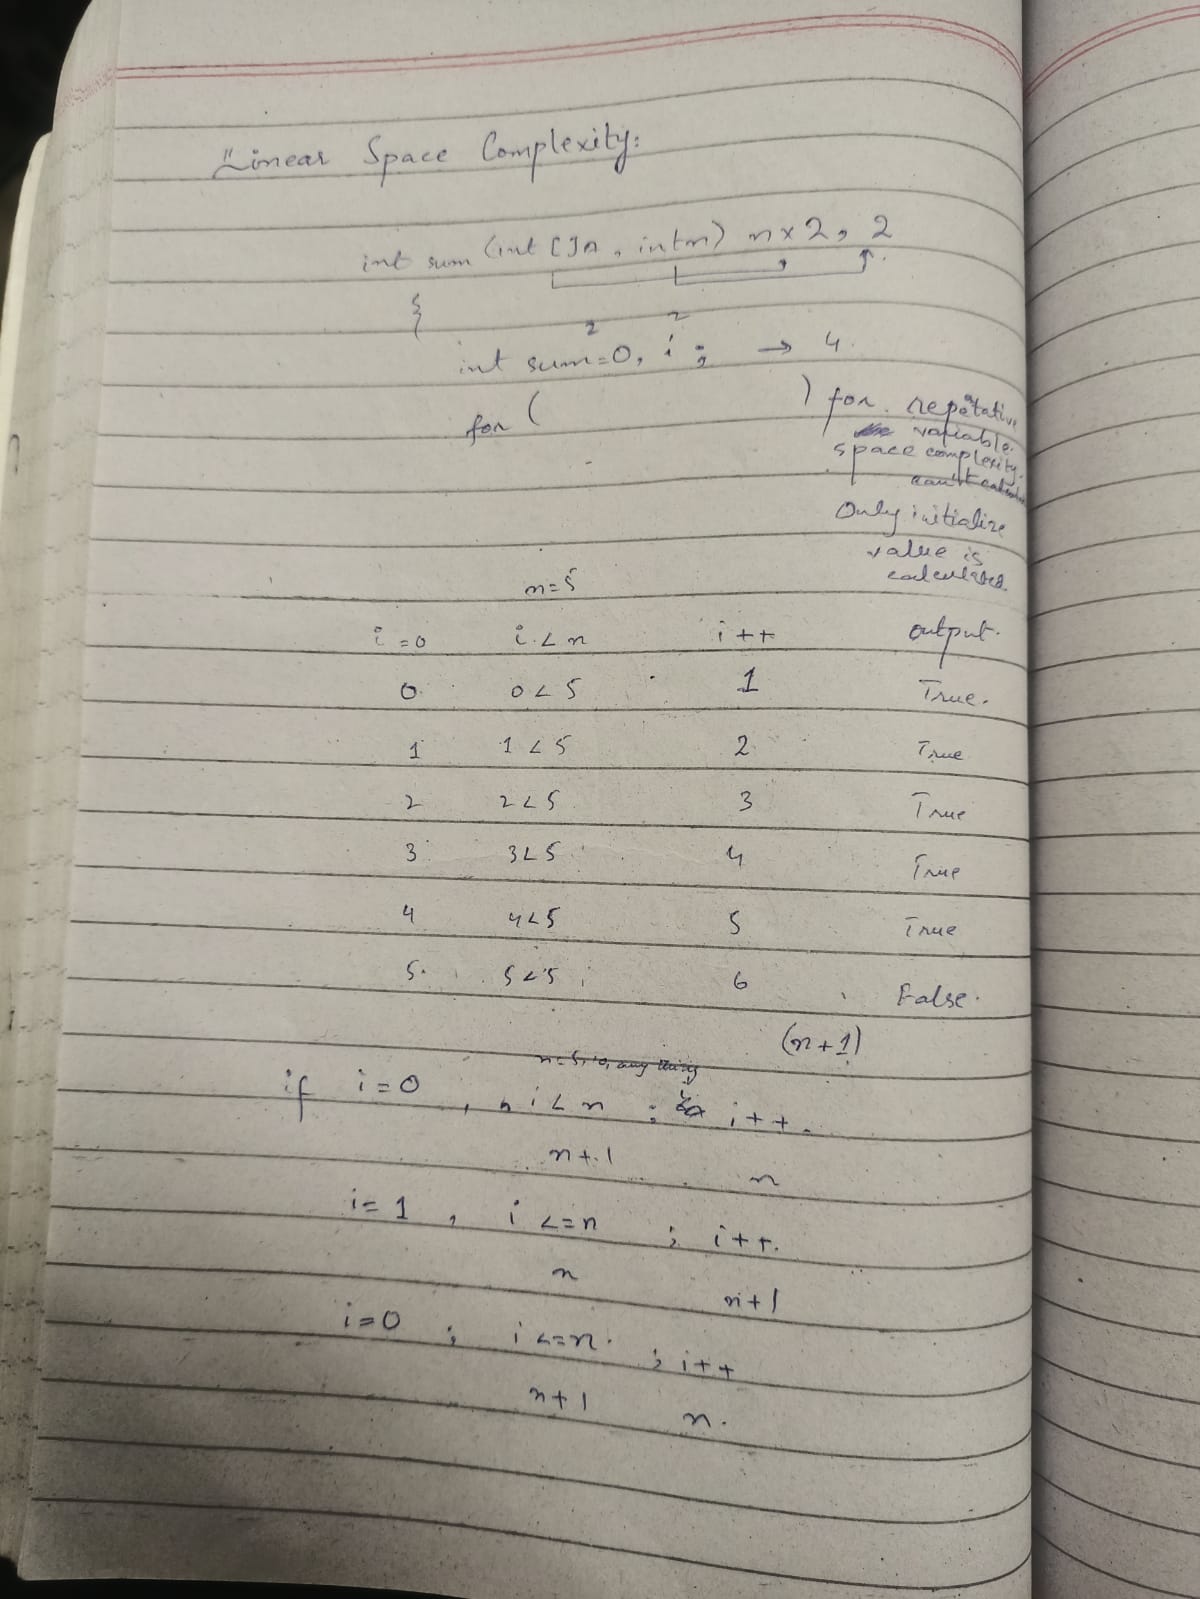 Linear Space Complexity:
int sum (int []A, int n) n x 2, 2
{
2 2
int sum=0, i ; → 4.
for ( ) for repetative
variable.
space complexity
can't
Only initialize
value is
calculated.
n=5
i=0 i<n i++ output.
0 0<5 1 True.
1 1<5 2 True
2 2<5 3 True
3 3<5 4 True
4 4<5 5 True
5. 5<5 6 False.
(n+1)
n=5, 10, any thing
if i=0 , i<n ; i++.
n+1 n
i=1 , i<=n ; i++.
n n+1
i=0 ; i<=n. ; i++
n+1 n.